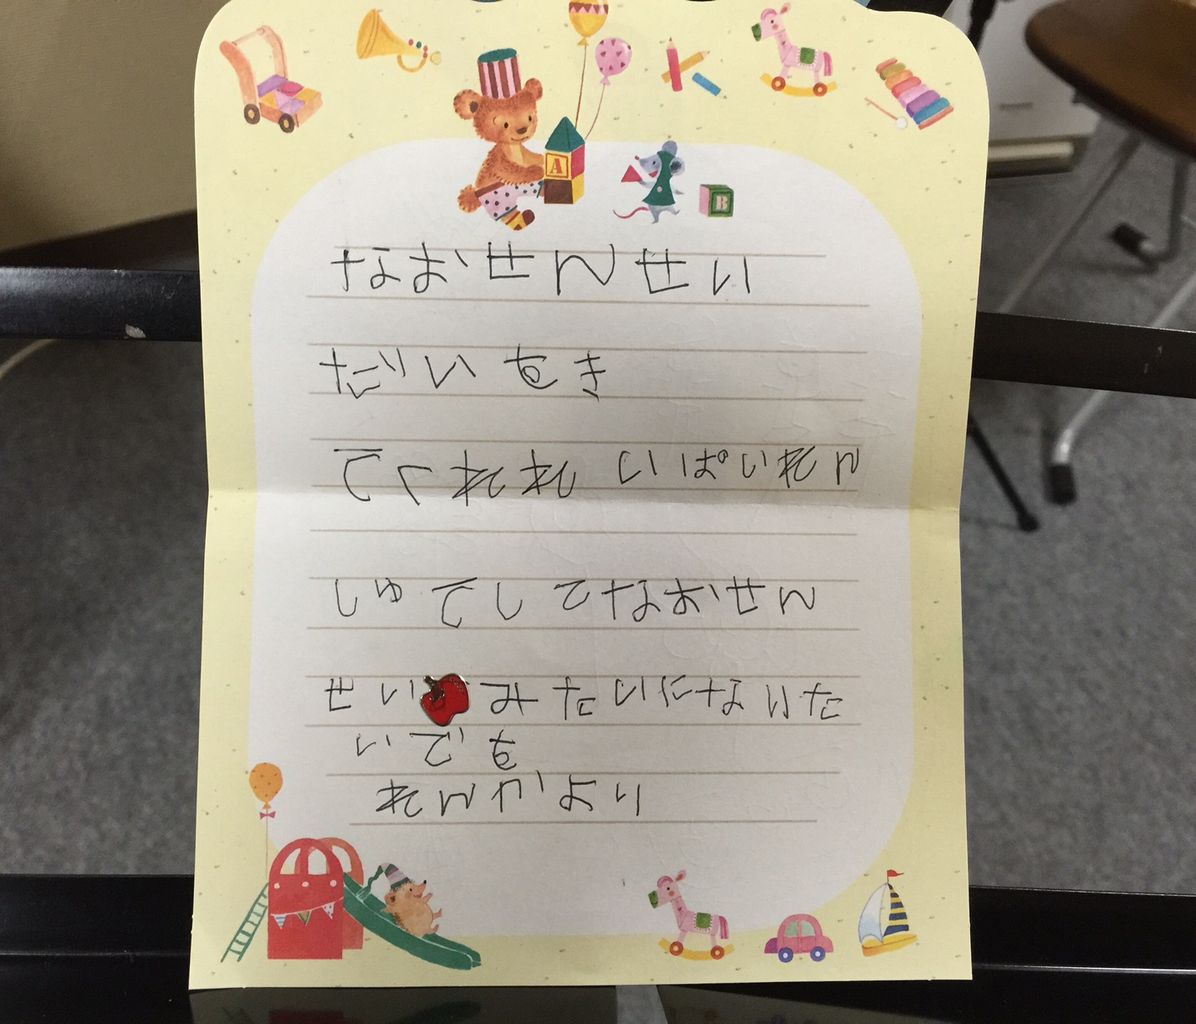 A
B
なおせんせい
だいすき
てくれれ いぱいれん
しゅてして なおせん
せい みたいになりた
いです
れんかより